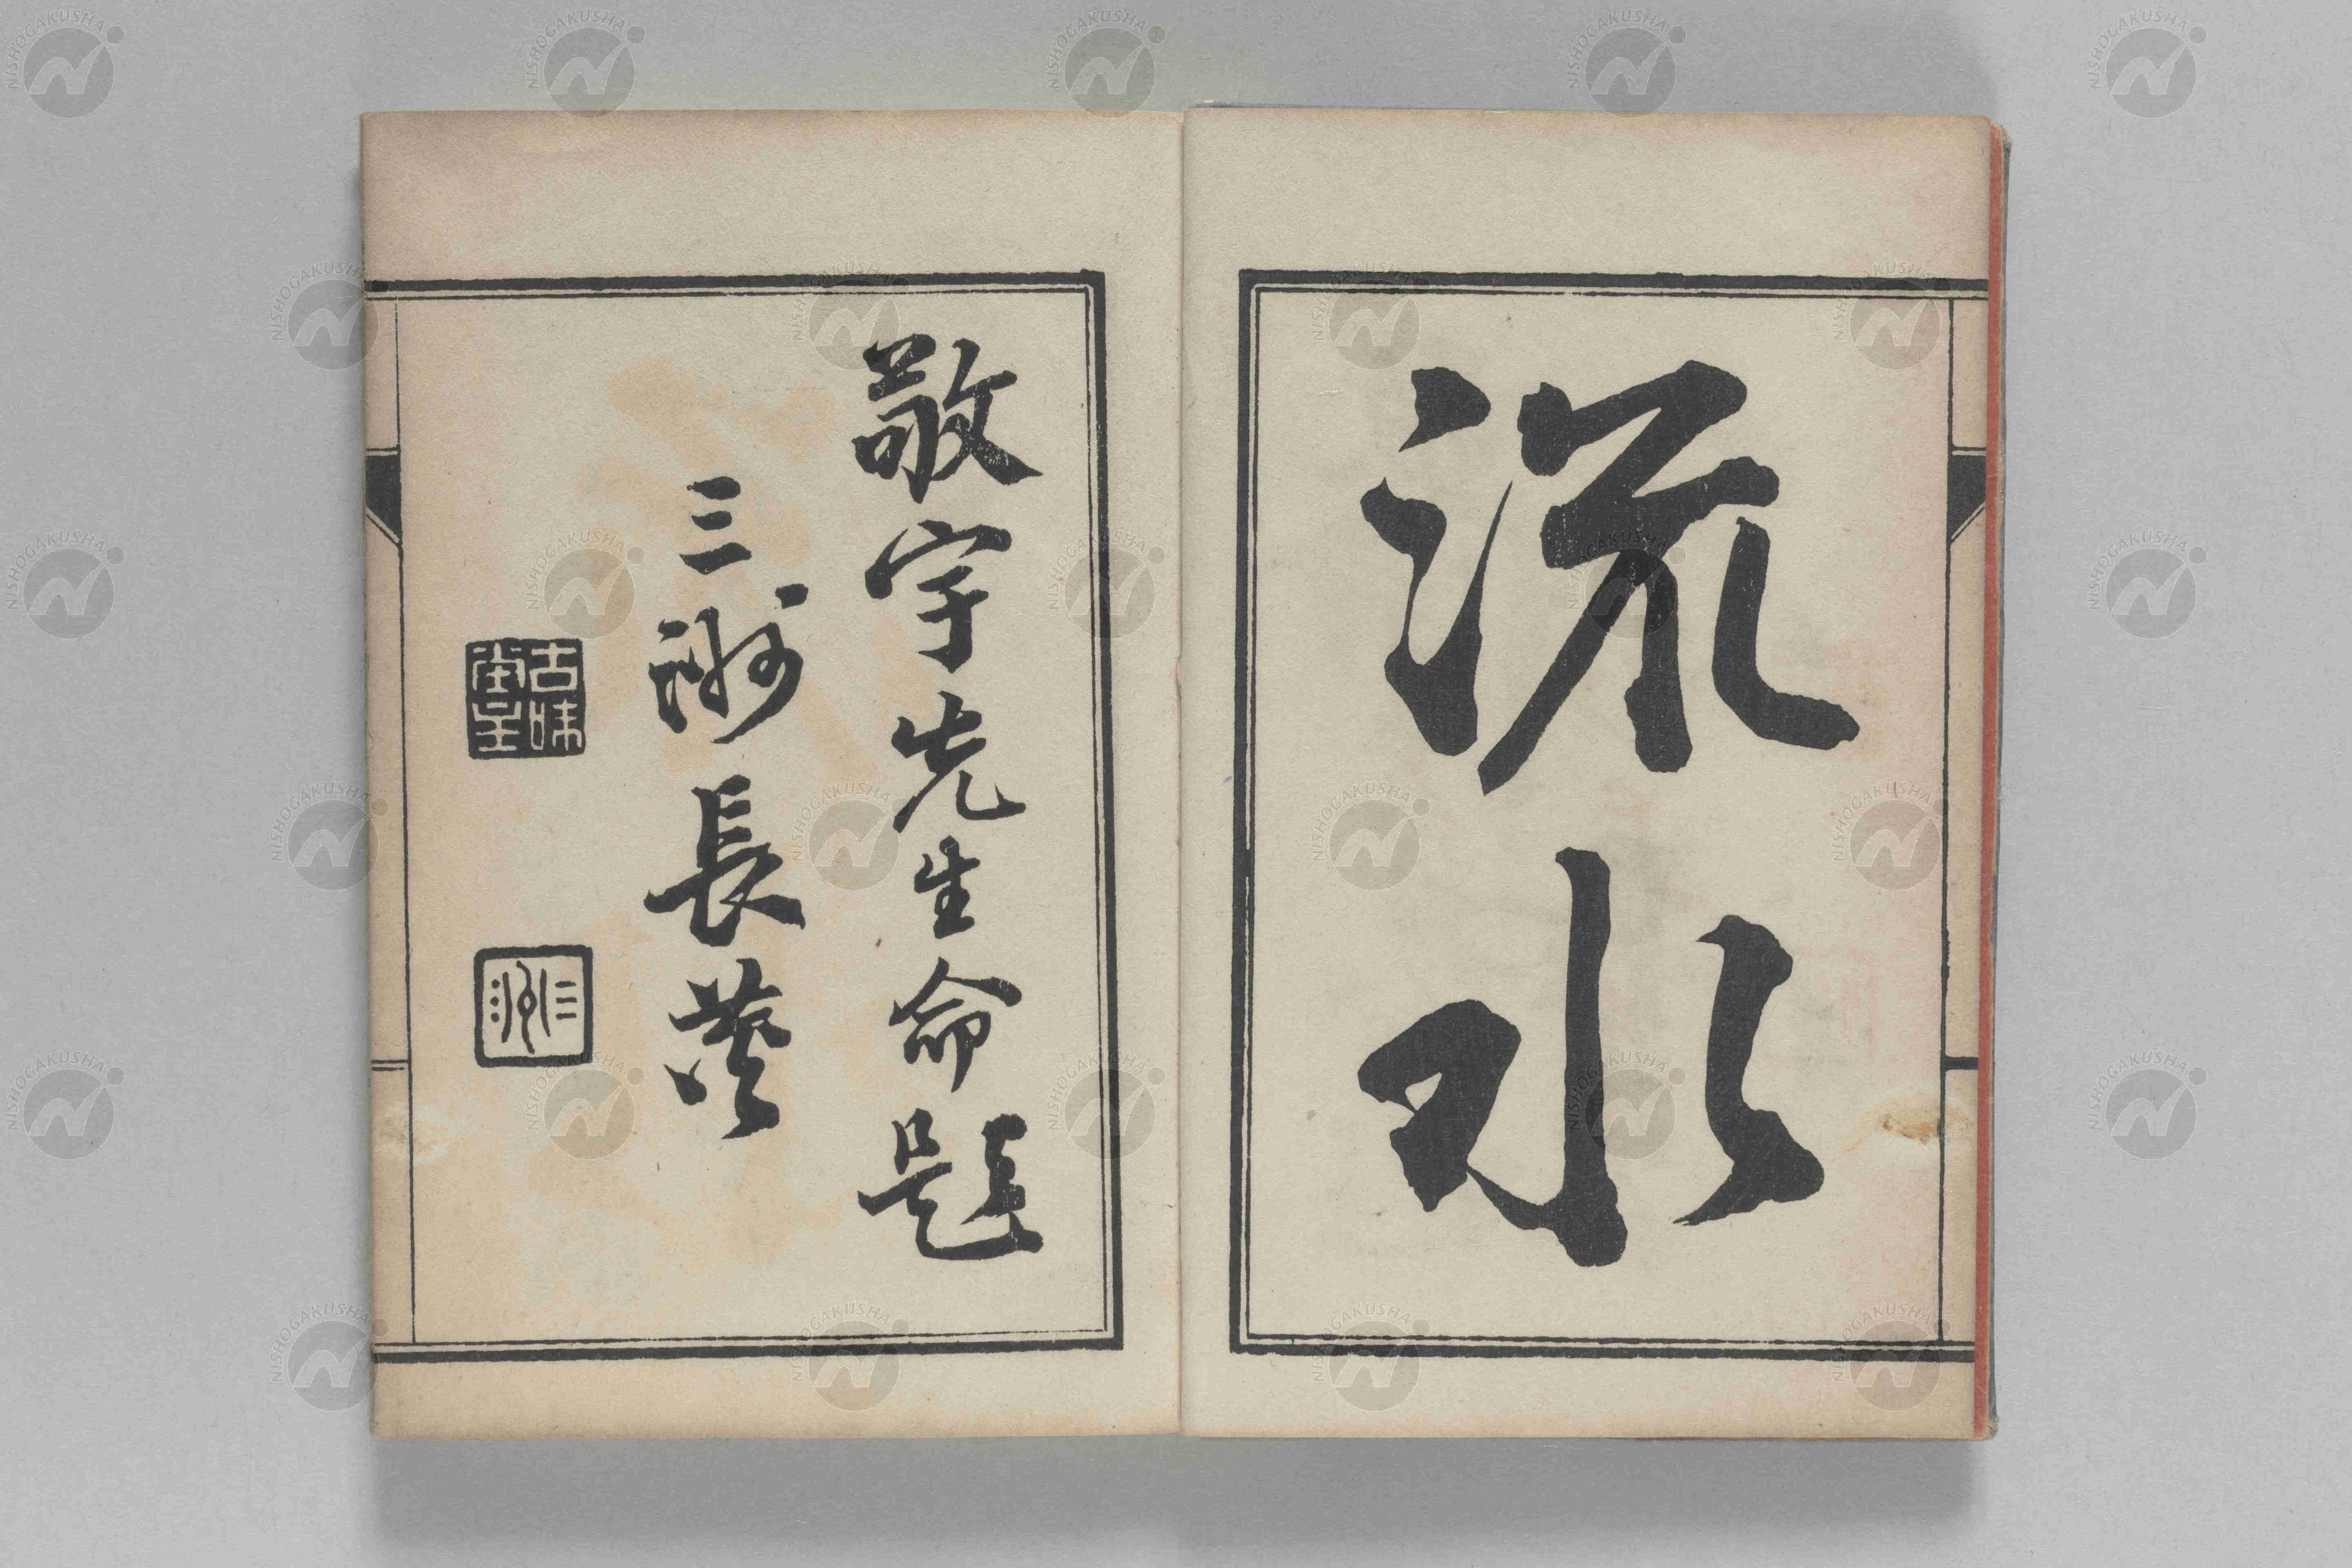 流水
敬宇先生命題
三洲長炗
古味堂主
三洲
NISHOGAKUSHA